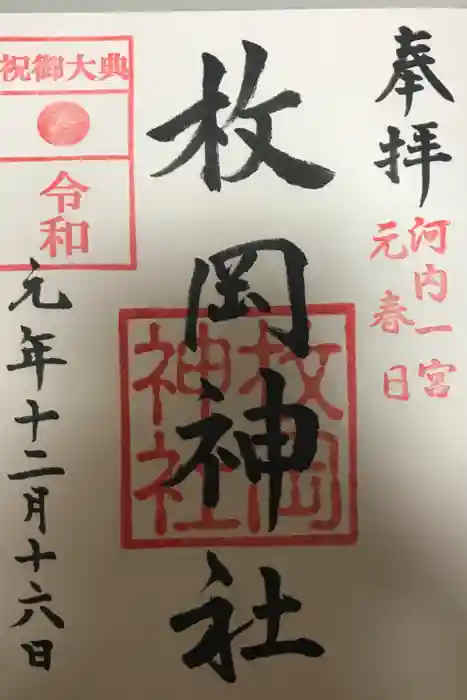 奉拝
河内一宮
元春日
枚岡神社
枚岡
神社
祝御大典
令和
元年十二月十六日